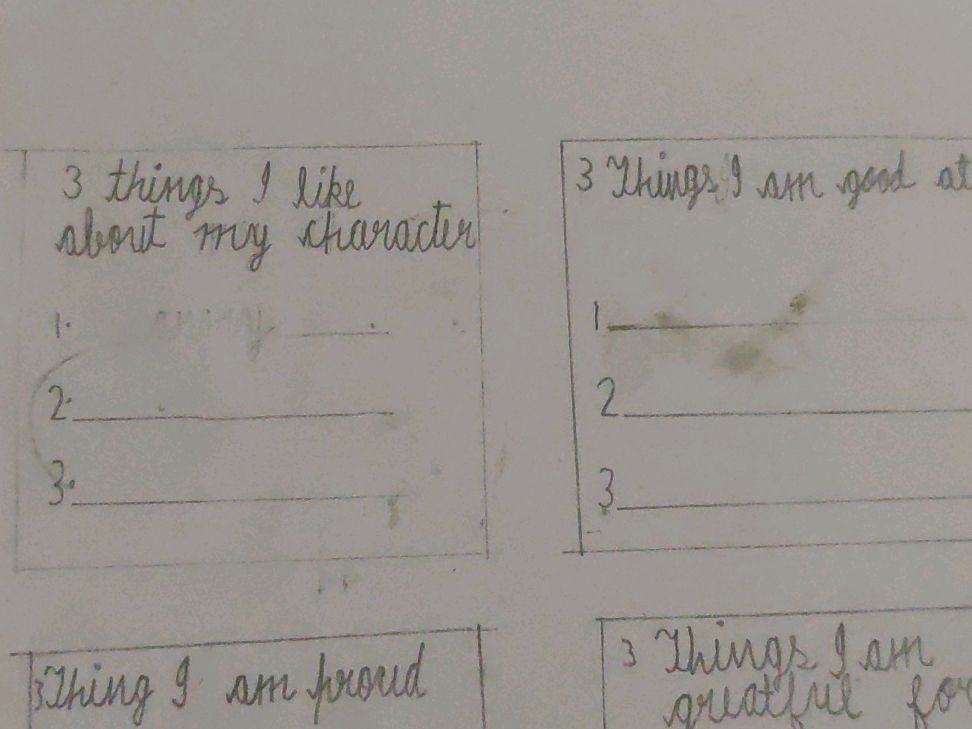 3 things I like
about my character
1.
2.
3.
3 Things I am good at
1
2
3
3 Thing I am proud
3 Things I am
greatful for